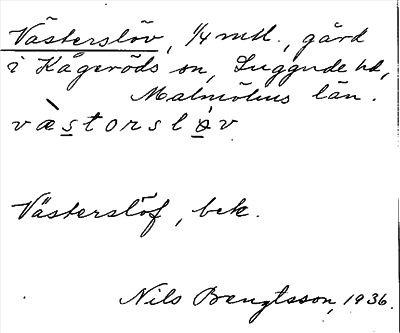 Västerslöv, 1/4 mtl., gård
i Kågeröds sn, Luggude hd,
Malmöhus län.
v æ̀ s t o r s l ø̀ v
Västerslöf, bek.
Nils Bengtsson, 1936.